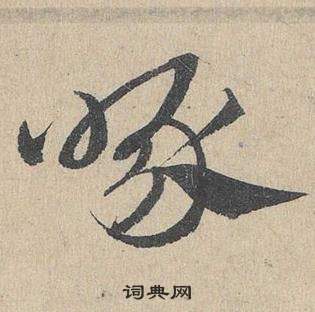 啄
词典网